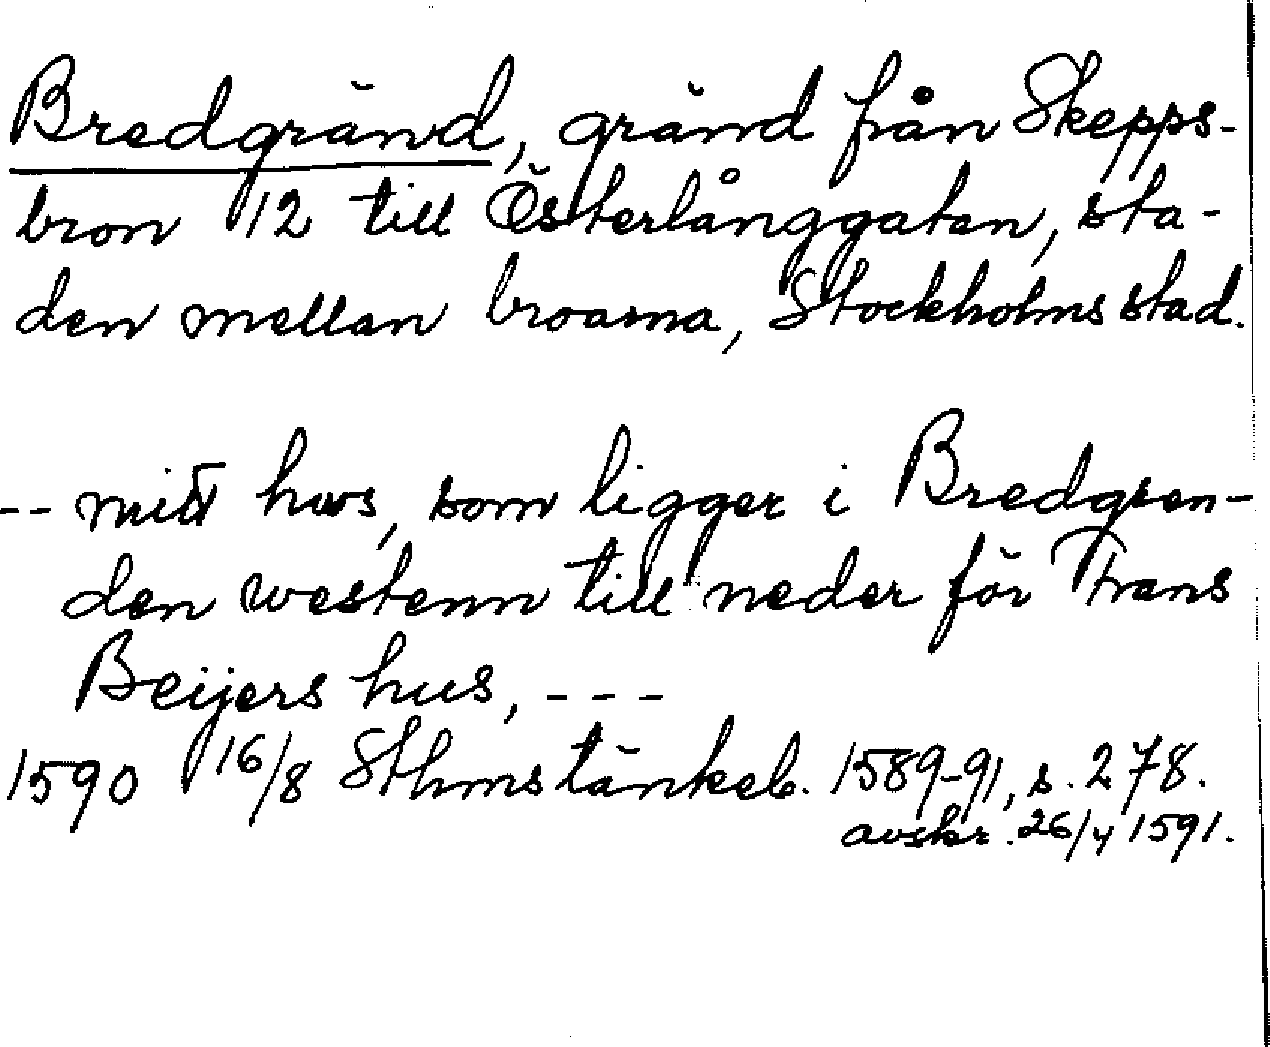 Bredgränd, gränd från Skepps-
bron 12 till Österlånggatan, sta-
den mellan broarna, Stockholms stad.
-- mitt hws, som ligger i Bredgren-
den westenn till neder för Frans
Beijers hus, ---
1590 16/8 Sthmstänkeb. 1589-91, s. 278.
avskr. 26/4 1591.